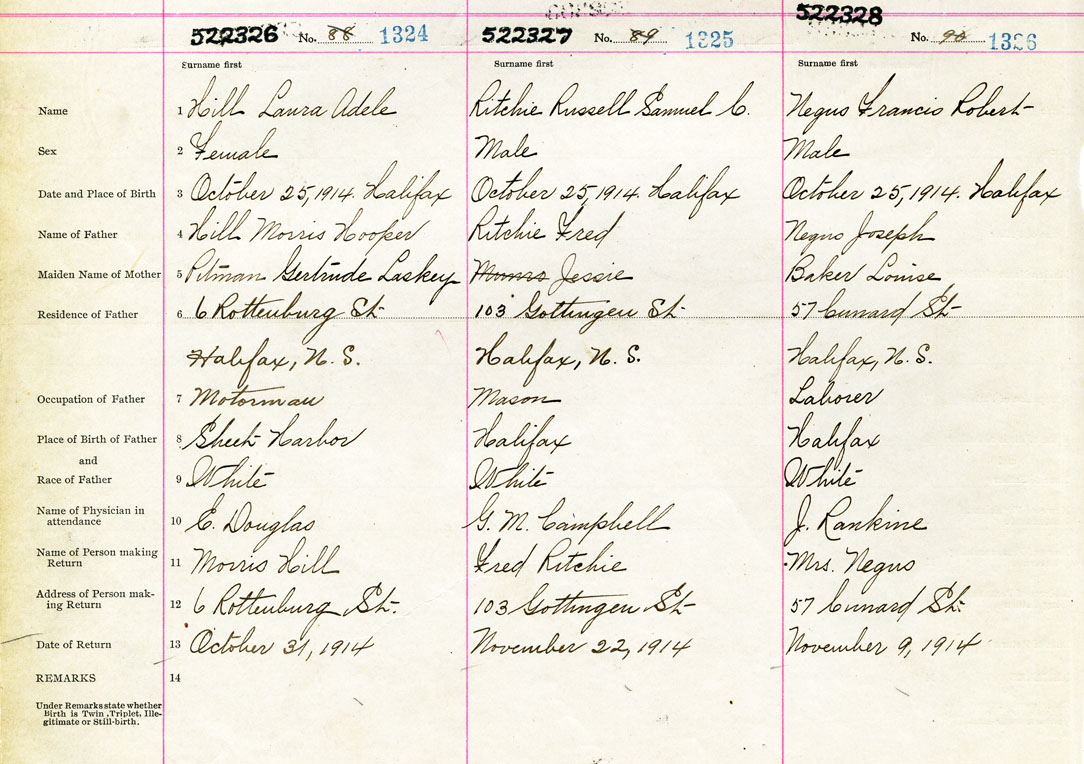 522326 No. 88 1324 522327 No. 89 1325 522328 No. 90 1326
Surname first Surname first Surname first
Name 1 Hill Laura Adele Ritchie Russell Samuel C. Negus Francis Robert
Sex 2 Female Male Male
Date and Place of Birth 3 October 25, 1914. Halifax October 25, 1914. Halifax October 25, 1914. Halifax
Name of Father 4 Hill Morris Hooper Ritchie Fred Negus Joseph
Maiden Name of Mother 5 Pitman Gertrude Laskey Munro Jessie Baker Louise
Residence of Father 6 6 Rottenburg St. 103 Gottingen St. 57 Cunard St.
Halifax, N. S. Halifax, N. S. Halifax, N. S.
Occupation of Father 7 Motorman Mason Laborer
Place of Birth of Father 8 Sheet Harbor Halifax Halifax
and
Race of Father 9 White White White
Name of Physician in
attendance 10 E. Douglas G. M. Campbell J. Rankine
Name of Person making
Return 11 Morris Hill Fred Ritchie Mrs. Negus
Address of Person mak-
ing Return 12 6 Rottenburg St. 103 Gottingen St. 57 Cunard St.
Date of Return 13 October 31, 1914 November 22, 1914 November 9, 1914
REMARKS 14
Under Remarks state whether
Birth is Twin, Triplet, Ille-
gitimate or Still-birth.